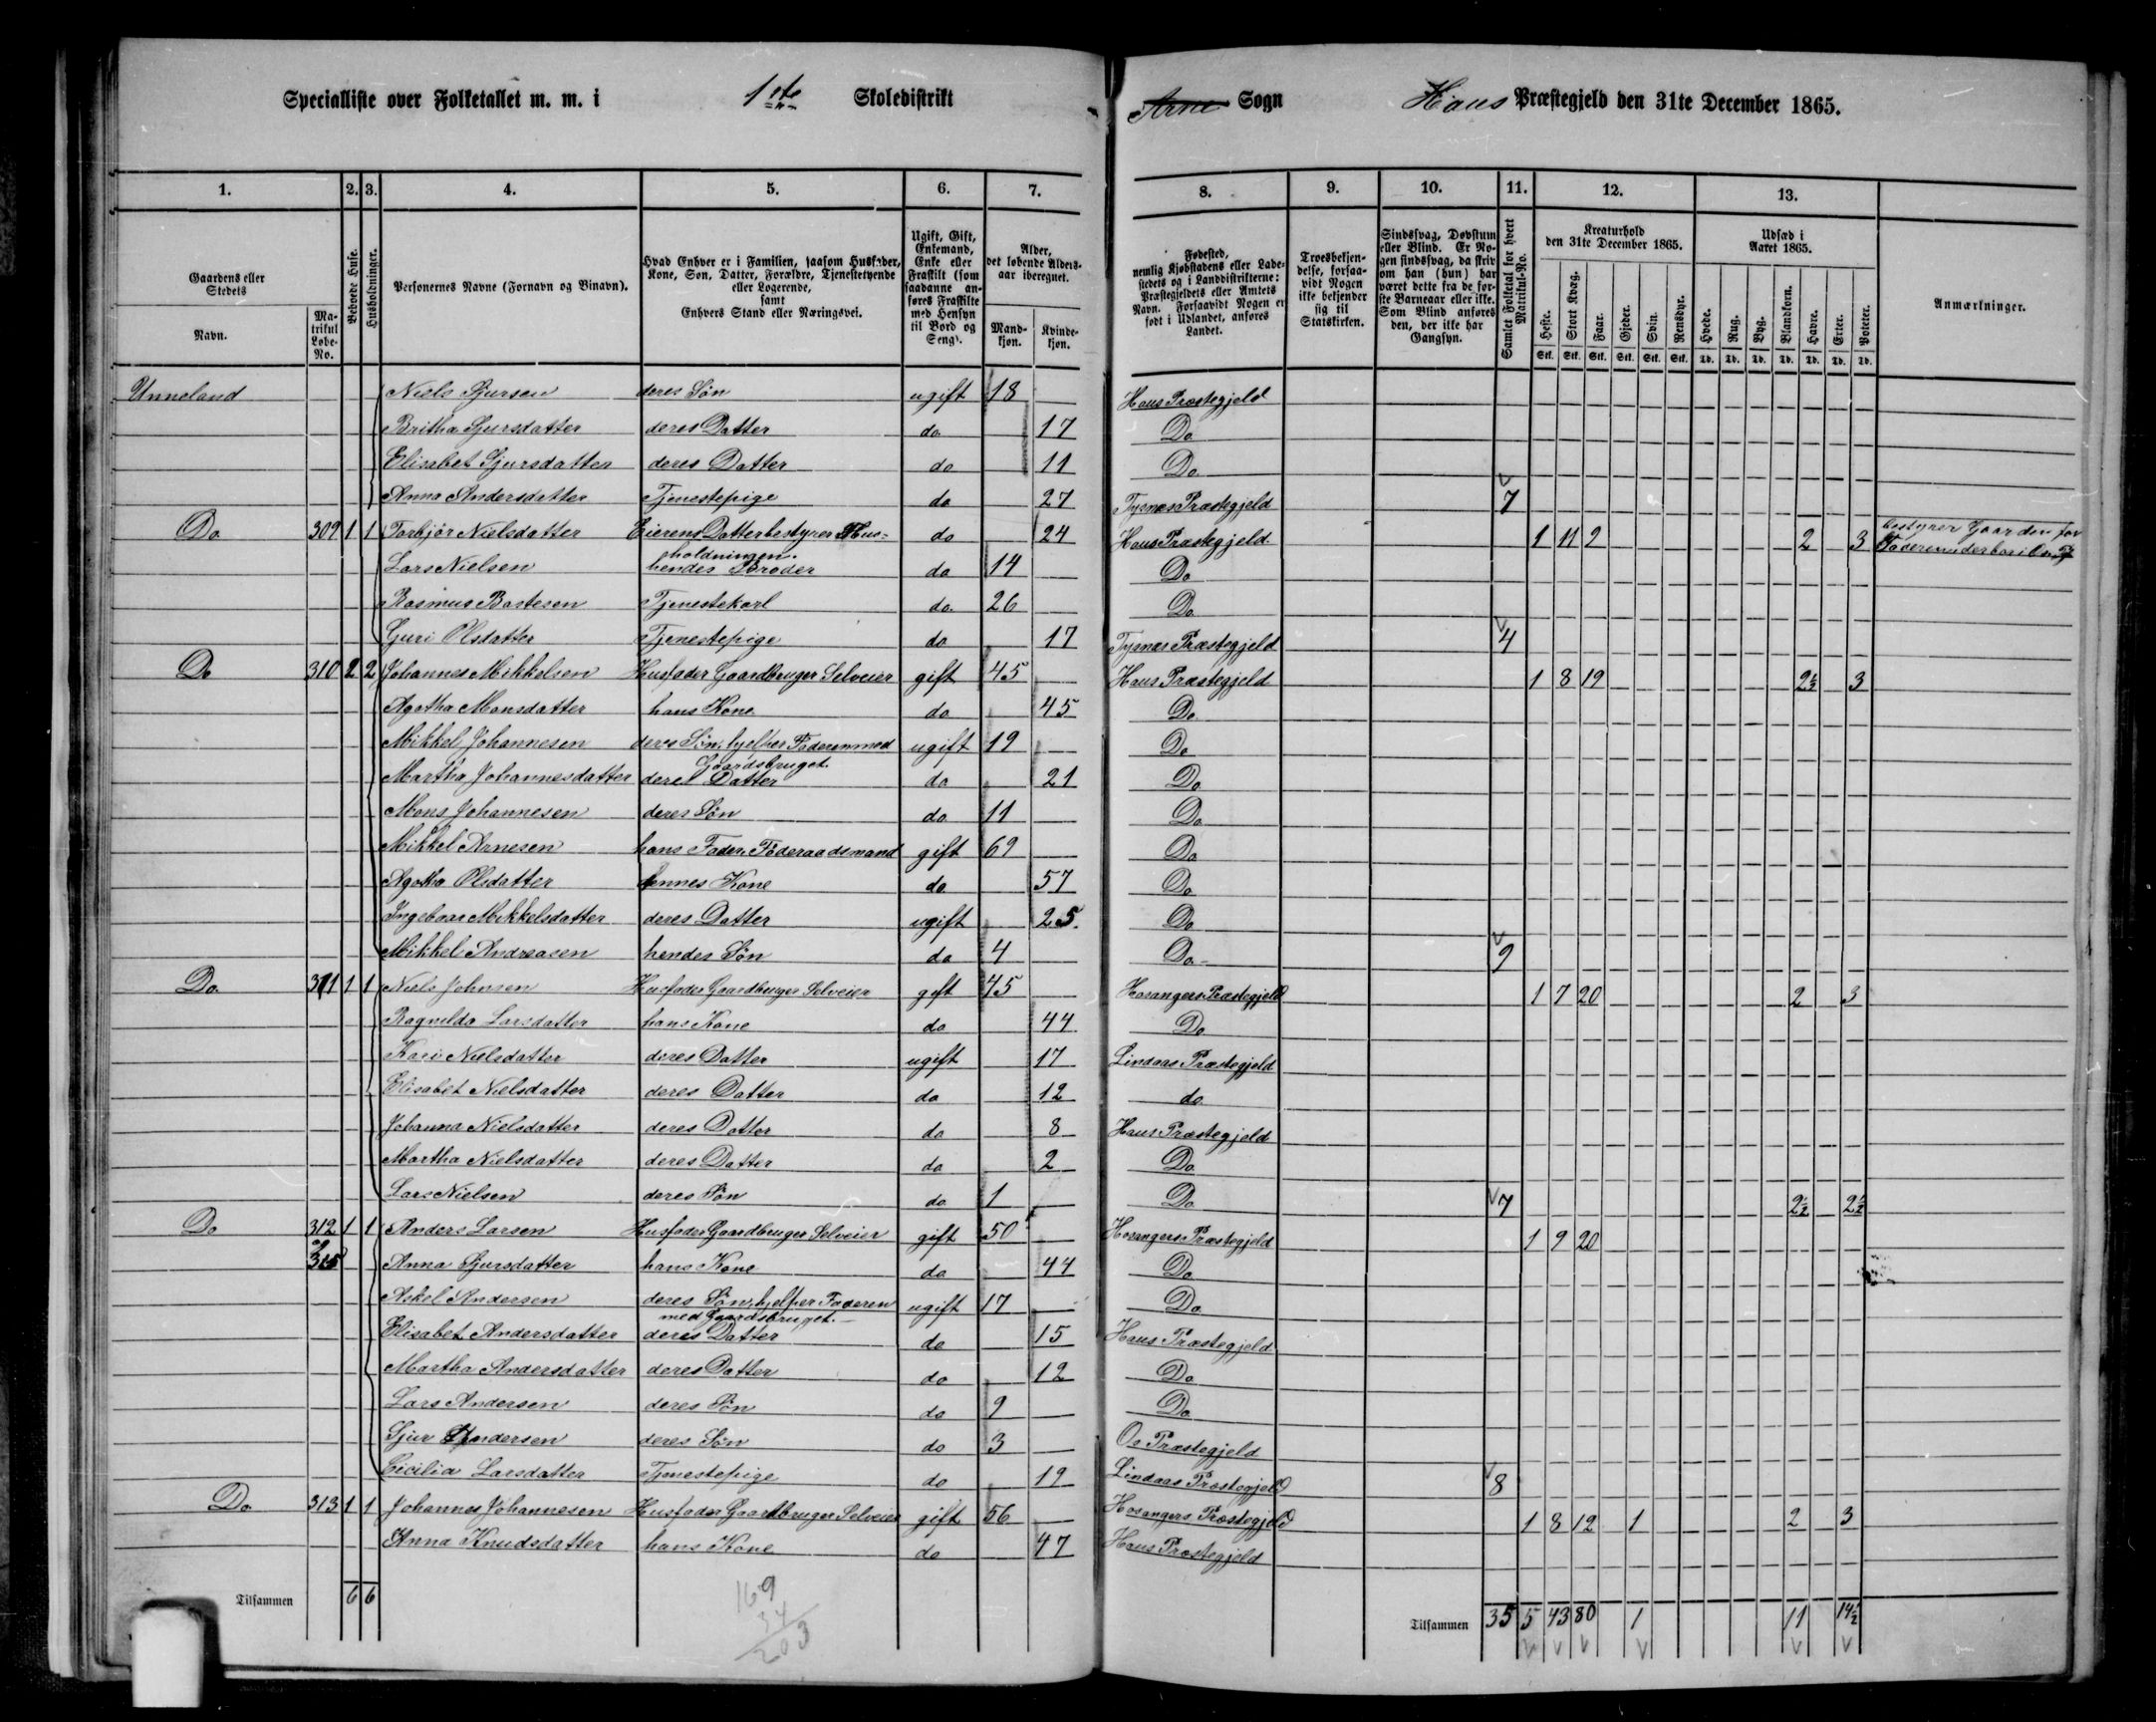 Specialliste over Folketallet m. m. i 1ste Skoledistrikt Arne Sogn Haus Præstegjeld den 31te December 1865.
1. 2. 3. 4. 5. 6. 7. 8. 9. 10. 11. 12. 13.
Gaardens eller Stedets
Navn.
Matrikul Løbe-No.
Beboede Huse.
Husholdninger.
Personernes Navne (Fornavn og Binavn).
Hvad Enhver er i Familien, saasom Husfader, Kone, Søn, Datter, Forældre, Tjenestetyende eller Logerende, samt Enhvers Stand eller Næringsvei.
Ugift, Gift, Enkemand, Enke eller Fraskilt (som saadanne anføres Fraskilte med Hensyn til Bord og Seng).
Alder, det løbende Alders-aar iberegnet.
Mandkjøn. Kvindekjøn.
Fødested, nemlig Kjøbstadens eller Ladestedets og i Landdistrikterne: Præstegjeldets eller Amtets Navn. Forsaavidt Nogen er født i Udlandet, anføres Landet.
Troesbekjendelse, forsaavidt Nogen ikke bekjender sig til Statskirken.
Sindssvag, Døvstum eller Blind. Er Nogen sindssvag, da skriv om han (hun) har været dette fra de første Barneaar eller ikke. Som Blind anføres den, der ikke har Gangsyn.
Samlet Folketal for hvert Matrikul-No.
Kreaturhold den 31te December 1865.
Heste. Stort Kvæg. Faar. Gjeder. Svin. Rensdyr.
Stk. Stk. Stk. Stk. Stk. Stk.
Udsæd i Aaret 1865.
Hvede. Rug. Byg. Blandkorn. Havre. Erter. Poteter.
Td. Td. Td. Td. Td. Td. Td.
Anmærkninger.
Unneland Niels Sjursen deres Søn ugift 18 Haus Præstegjeld
Britha Sjursdatter deres Datter do 17 Do
Elisabet Sjursdatter deres Datter do 11 Do
Anna Andersdatter Tjenestepige do 27 Tysnes Præstegjeld 7
Do 309 1 1 Torbjør Nielsdatter Eierens Datter bestyrer Hus= do 24 Haus Præstegjeld 1 11 2 2 3 bestyrer Gaarden for
holdningen.
Lars Nielsen hendes Broder do 14 Do
Rasmus Bastesen Tjenestekarl do 26 Do
Guri Olsdatter Tjenestepige do 17 Tysnes Præstegjeld 4
Do 310 2 2 Johannes Mikkelsen Husfader Gaardbruger Selveier gift 45 Haus Præstegjeld 1 8 19 2½ 3
Agatha Monsdatter hans Kone do 45 Do
Mikkel Johannesen deres Søn, hjelper Faderen med ugift 19 Do
Gaardsbruget.
Martha Johannesdatter deres Datter do 21 Do
Mons Johannesen deres Søn do 11 Do
Mikkel Arnesen hans Fader, Føderaadsmand gift 69 Do
Agatha Olsdatter hannes Kone do 57 Do
Ingeboar Mikkelsdatter deres Datter ugift 25 Do
Mikkel Andreasen hendes Søn do 4 Do 9
Do 311 1 1 Niels Johnsen Husfader Gaardbruger Selveier gift 45 Hosangers Præstegjeld 1 7 20 2 3
Ragnilda Larsdatter hans Kone do 44 Do
Kari Nielsdatter deres Datter ugift 17 Lindaas Præstegjeld
Elisabet Nielsdatter deres Datter do 12 do
Johanna Nielsdatter deres Datter do 8 Haus Præstegjeld
Martha Nielsdatter deres Datter do 2 Do
Lars Nielsen deres Søn do 1 Do 7 2½ 2½
Do 312 1 1 Anders Larsen Husfader Gaardbruger Selveier gift 50 Hosangers Præstegjeld 1 9 20
315 Anna Sjursdatter hans Kone do 44 Do
Askel Andersen deres Søn, hjelper Faderen ugift 17 Do
med Gaardsbruget.
Elisabet Andersdatter deres Datter do 15 Haus Præstegjeld
Martha Andersdatter deres Datter do 12 Do
Lars Andersen deres Søn do 9 Do
Sjur Andersen deres Søn do 3 Os Præstegjeld
Cicilia Larsdatter Tjenestepige do 19 Lindaas Præstegjeld 8
Do 313 1 1 Johannes Johannesen Husfader Gaardbruger Selveier gift 56 Hosangers Præstegjeld 1 8 12 1 2 3
Anna Knudsdatter hans Kone do 47 Haus Præstegjeld
Tilsammen 6 6 Tilsammen 35 5 43 80 1 11 14½
169
34
203